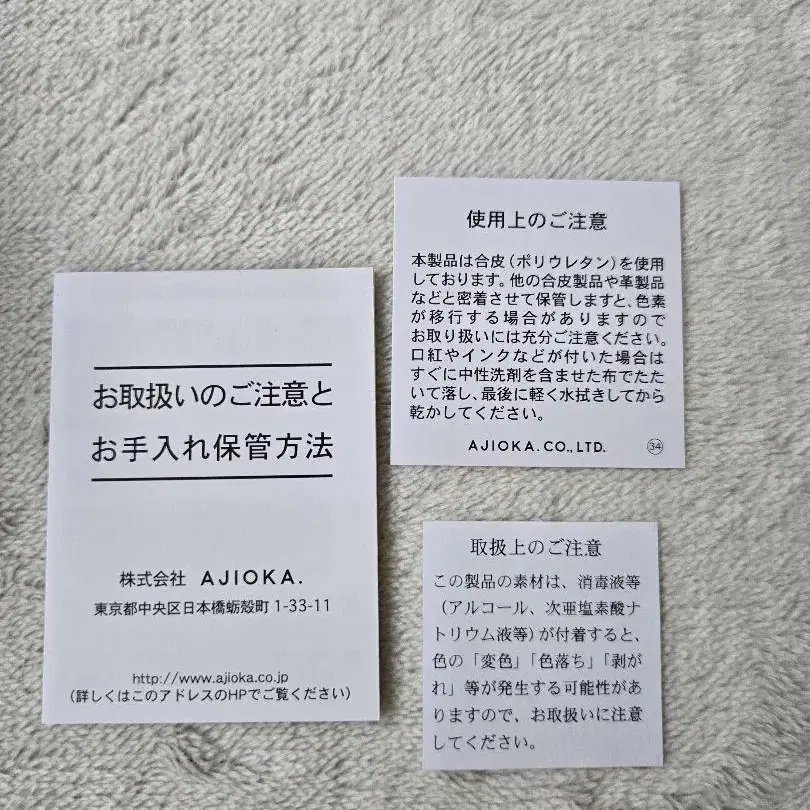 お取扱いのご注意と
お手入れ保管方法
株式会社 AJIOKA.
東京都中央区日本橋蛎殻町1-33-11
http://www.ajioka.co.jp
(詳しくはこのアドレスのHPでご覧ください)
使用上のご注意
本製品は合皮(ポリウレタン)を使用
しております。他の合皮製品や革製品
などと密着させて保管しますと、色素
が移行する場合がありますので
お取り扱いには充分ご注意ください。
口紅やインクなどが付いた場合は
すぐに中性洗剤を含ませた布でたた
いて落し、最後に軽く水拭きしてから
乾かしてください。
AJIOKA. CO., LTD. ㉞
取扱上のご注意
この製品の素材は、消毒液等
(アルコール、次亜塩素酸ナ
トリウム液等)が付着すると、
色の「変色」「色落ち」「剥が
れ」等が発生する可能性があ
りますので、お取扱いに注意
してください。